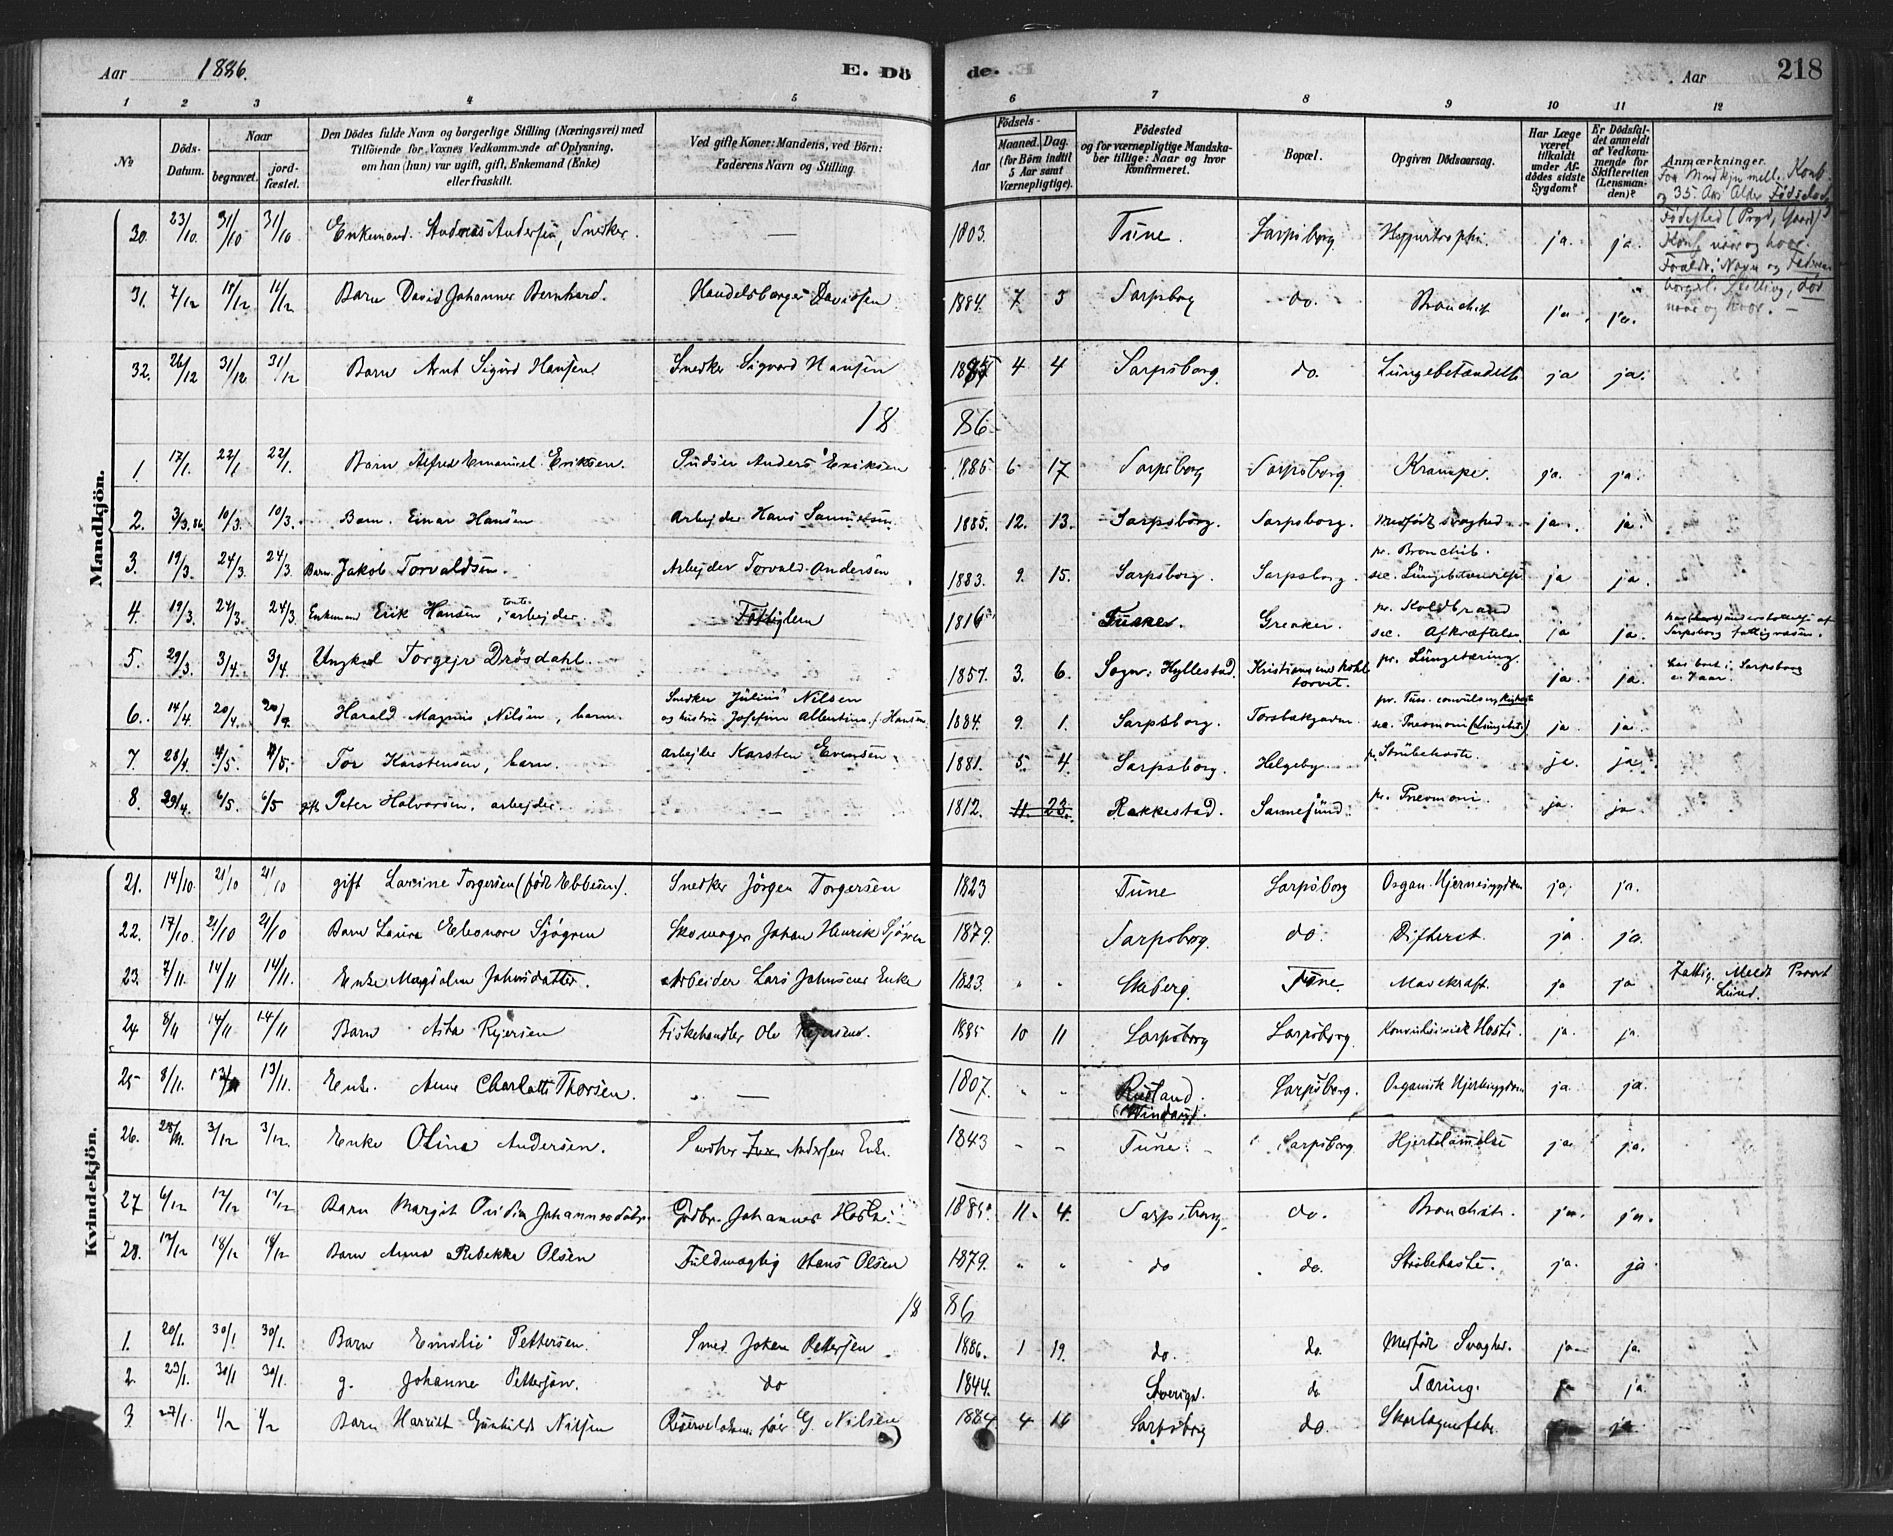 Aar 1886. E. Dö
de. Aar 218
1 2 3 4 5 6 7 8 9 10 11 12
No Döds-Datum. Naar begravet. jord-fæstet. Den Dödes fulde Navn og borgerlige Stilling (Næringsvei) med Tilföiende for Voxnes Vedkommende af Oplysning, om han (hun) var ugift, gift, Enkemand (Enke) eller fraskilt. Ved gifte Koner: Mandens, ved Börn: Faderens Navn og Stilling. Födsels- Aar Maaned. Dag. (for Börn indtil 5 Aar samt Værnepligtige). Födested og for værnepligtige Mandskaber tillige: Naar og hvor konfirmeret. Bopæl. Opgiven Dödsaarsag. Har Læge været tilkaldt under Afdödes sidste Sygdom? Er Dödsfaldet anmeldt af Vedkommende for Skifteretten (Lensmanden)? Anmærkninger.
For Mandkjøn mell. Konf.
og 35. Aars Alder Fødselsd.
Fødested (Prgd, Gaard)
Konf. naar og hvor.
Forældr. Navn og
borgerl. Stilling, død
naar og hvor. —
Mandkjön.
30. 23/10. 31/10 31/10 Enkemand. Andreas Andersen, Snedker. — 1803. Tune. Sarpsborg Hypertrophi. ja. ja.
31. 7/12 11/12 11/12 Barn David Johannes Bernhard. Handelsborger Davidsen 1884. 7 5 Sarpsborg do. Bronchit ja. ja.
32. 26/12 31/12 31/12 Barn Arnt Sigurd Hansen. Snedker Sigvard Hansen 1885 4 4 Sarpsborg. do. Lungebetændelse ja ja.
1886
1 17/1. 22/1 22/1. Barn Alfred Emanuel Eriksen. Pudser Anders Eriksen 1885 6 17 Sarpsborg Sarpsborg. Krampe. ja. ja.
2. 3/3.86. 10/3. 10/3. Barn. Einar Hansen Arbejder Hans Samuelsen. 1885. 12. 13. Sarpsborg. Sarpsborg. Medfødt svaghed. ja. ja.
3. 19/3. 24/3. 24/3. Barn. Jakob Torvaldsen. Arbejder Torvald Andersen 1883. 9. 15. Sarpsborg. Sarpsborg. pr. Bronchit. sec. Lungebetændelse ja ja.
4. 19/3. 24/3. 24/3. Enkemand Erik Hansen, arbejder. Fattiglem 1816 Tune. Greaker. pr. Koldbrand sec. Afkræftelse ja ja. Sarpsborg fattigvæsen.
5. 29/3. 3/4. 3/4. Ungkarl Torgejr Drøsdahl. 1857. 3. 6. Sogn: Hyllestad. Kristiansund torvet. pr. Lungetæring. ja. ja. har boet i Sarpsborg
6. 14/4. 20/4. Harald Magnus Nilsen, barn. Snedker Julius Nilsen og hustru Josefine Albertine f. Hansen 1884. 9. 1. Sarpsborg. Torsbakgaden. sec. Pneumoni (Lungebet.) ja ja.
7. 28/4. 4/5. 4/5. Tor Karstensen, barn. Arbejder Karsten Evensen. 1881. 5. 4. Sarpsborg. Helgeby. pr. Strubehoste. ja. ja.
8. 29/4. 6/5. 6/5 gift Peter Halvorsen, arbejder. — 1812. 11. 23. Rakkestad. Sannesund. pr. Pneumoni. ja. ja
Kvindekjön.
21. 14/10. 21/10 21/10 gift Lavine Torgersen (født Ebbesen). Snedker Jörgen Torgersen 1823 Tune Sarpsborg Organ. Hjernesygdom ja. ja.
22. 17/10. 21/10 21/10 Barn Laura Eleonore Sjögren Skomager Johan Henrik Sjögren 1879. Sarpsborg. do. Difterit. ja. ja.
23. 7/11. 14/11 14/11. Enke Magdalene Johnsdatter. Arbeider Lars Johnsens Enke 1823. " " Skeberg. Tune. Mavekræft. ja ja Fattig. Meldt Provst Lund.
24 8/11 14/11 14/11 Barn Asta Rejersen Fiskehandler Ole Rejersen. 1885 10 11 Sarpsborg Sarpsborg. Konvulsivisk Hoste. ja. ja.
25 8/11. 13/11 13/11. Enke. Anne Charlotte Thorsen. — 1807. " " Rusland. Sarpsborg. Organisk Hjertesygdom ja. ja.
26. 28/11. 3/12 3/12. Enke Olina Andersen. Snedker Andersens Enke. 1843 — — Tune. Sarpsborg Hjertelammelse ja. ja.
27 6/12 12/12 12/12 Barn Margit Johannesdatter Johannes 1885. 11. 4. Sarpsborg. do. Bronchit. ja. ja.
28. 12/12 18/12 18/12 Barn Anna Rebekka Olsen Fuldmægtig Hans Olsen 1879. " " do do. Strubehoste. ja. ja
1886
1. 20/1. 30/1 30/1. Barn Emilie Pettersen. Smed Johan Pettersen 1886. 1 19. do. do. Medfødt Svaghed. ja. ja.
2. 23/1. 30/1 30/1. g. Johanne Pettersen. do 1844. Sverige. do Tæring. ja ja.
3 27/1. 4/2 4/2 Barn Harriet Gunhilde Nilsen G. Nilsen 1884. 4 16 Sarpsborg do. Skarlagensfeber. ja